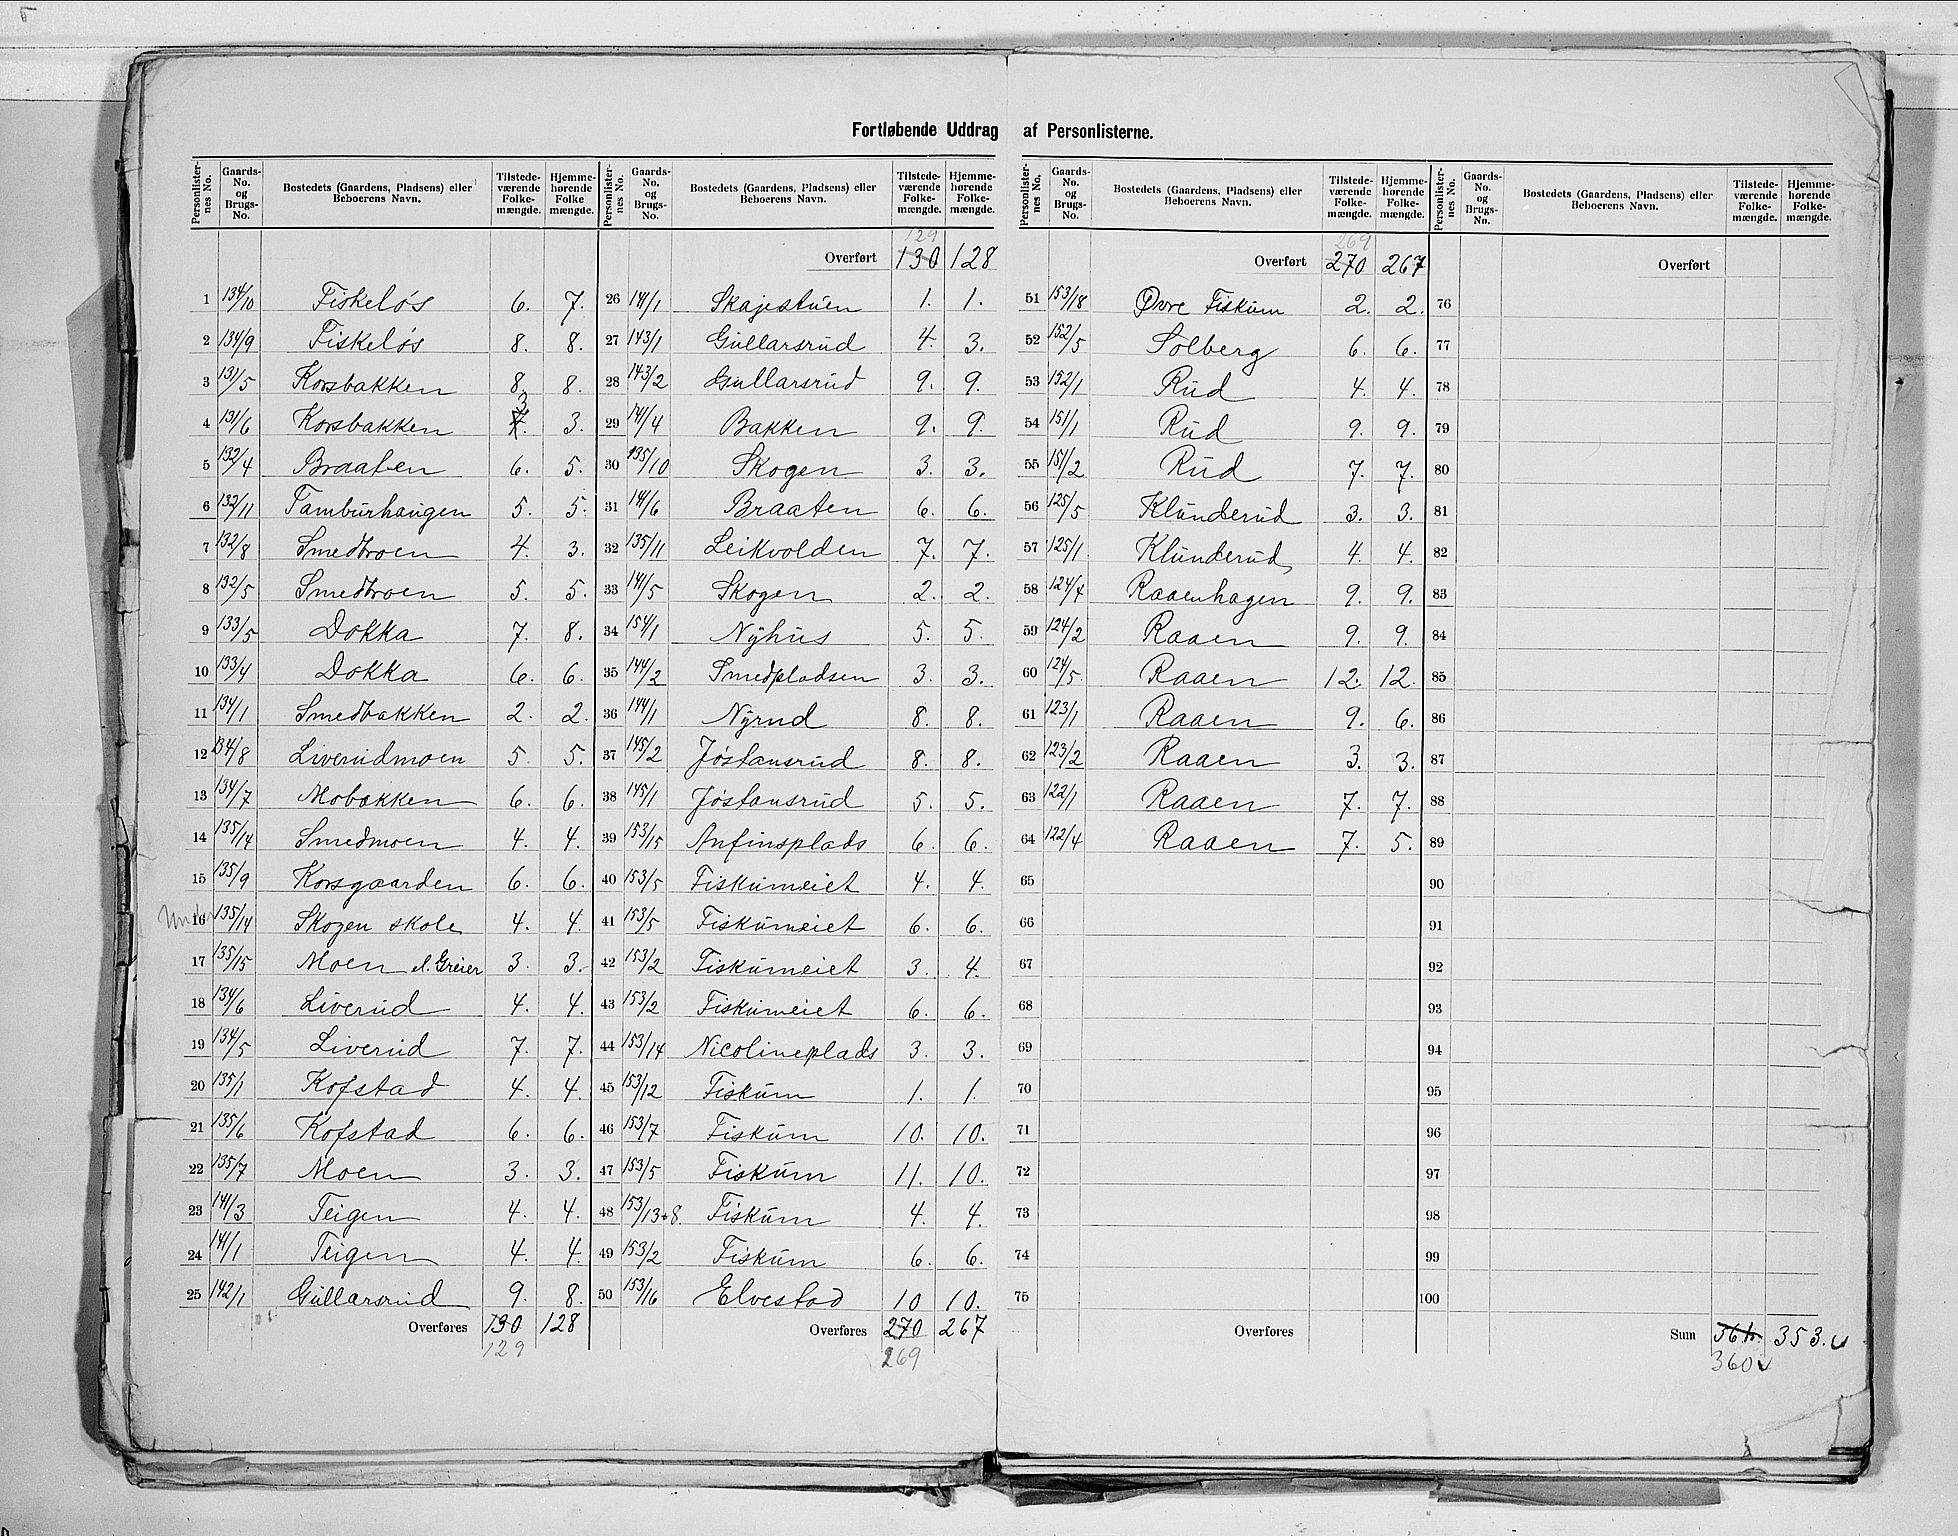 Fortløbende Uddrag af Personlisterne.
Personlister-nes No. Gaards-No. og Brugs-No. Bostedets (Gaardens, Pladsens) eller Beboerens Navn. Tilstede-værende Folke-mængde. Hjemme-hørende Folke mængde.
1 134/10 Fiskeløs 6. 7.
2 134/9 Fiskeløs 8. 8.
3 131/5 Korsbakken 8. 8.
4 131/6 Korsbakken 3 3.
5 132/4 Braaten 6. 5.
6 132/11 Tamburhaugen 5. 5.
7 132/8 Smedbroen 4. 3.
8 132/5 Smedbroen 5. 5.
9 133/5 Dokka 7. 8.
10 133/4 Dokka 6. 6.
11 134/1 Smedbakken 2. 2.
12 134/8 Liverudmoen 5. 5.
13 134/7 Mobakken 6. 6.
14 135/14 Smedmoen 4. 4.
15 135/9 Korsgaarden 6. 6.
16 135/14 Skogen skole 4. 4.
17 135/15 Moen el. Greier 3. 3.
18 134/6 Liverud 4. 4.
19 134/5 Liverud 7. 7.
20 135/1 Kofstad 4. 4.
21 135/6 Kofstad 6. 6.
22 135/7 Moen 3. 3.
23 141/3 Teigen 4. 4.
24 141/1 Teigen 4. 4.
25 142/1 Gullarsrud 9. 8.
Overføres 130 128
129
Personlister-nes No. Gaards-No. og Brugs-No. Bostedets (Gaardens, Pladsens) eller Beboerens Navn. Tilstede-værende Folke-mængde. Hjemme-hørende Folke-mængde.
129
Overført 130 128
26 141/1 Skajestuen 1. 1.
27 143/1 Gullarsrud 4. 3.
28 143/2 Gullarsrud 9. 9.
29 141/4 Bakken 9. 9.
30 135/10 Skogen 3. 3.
31 141/6 Braaten 6. 6.
32 135/11 Leikvolden 7. 7.
33 141/5 Skogen 2. 2.
34 154/1 Nyhus 5. 5.
35 144/2 Smedpladsen 3. 3.
36 144/1 Nyrud 8. 8.
37 145/2 Jøstansrud 8. 8.
38 145/1 Jøstansrud 5. 5.
39 153/15 Anfinsplads 6. 6.
40 153/5 Fiskumeiet 4. 4.
41 153/5 Fiskumeiet 6. 6.
42 153/2 Fiskumeiet 3. 4.
43 153/2 Fiskumeiet 6. 6.
44 153/14 Nicolineplads 3. 3.
45 153/12 Fiskum 1. 1.
46 153/7 Fiskum 10. 10.
47 153/5 Fiskum 11. 10.
48 153/13+8. Fiskum 4. 4.
49 153/2 Fiskum 6. 6.
50 153/16 Elvestad 10 10.
Overføres 270 267
269
Personlister-nes No. Gaards-No. og Brugs-No. Bostedets (Gaardens, Pladsens) eller Beboerens Navn. Tilstede-værende Folke-mængde. Hjemme-hørende Folke-mængde.
269
Overført 270 267
51 153/18 Øvre Fiskum 2. 2.
52 152/5 Solberg 6. 6.
53 152/1 Rud 4. 4.
54 151/1 Rud 9. 9.
55 151/2 Rud 7. 7.
56 125/5 Klunderud 3. 3.
57 125/1 Klunderud 4. 4.
58 124/4 Raaenhagen 9. 9.
59 124/2 Raaen 9. 9.
60 124/5 Raaen 12. 12.
61 123/1 Raaen 9. 6.
62 123/2 Raaen 3. 3.
63 122/1 Raaen 7. 7.
64 122/4 Raaen 7. 5.
65
66
67
68
69
70
71
72
73
74
75
Overføres
Personlister-nes No. Gaards-No. og Brugs-No. Bostedets (Gaardens, Pladsens) eller Beboerens Navn. Tilstede-værende Folke-mængde. Hjemme-hørende Folke-mængde.
Overført
76
77
78
79
80
81
82
83
84
85
86
87
88
89
90
91
92
93
94
95
96
97
98
99
100
Sum 353.
360